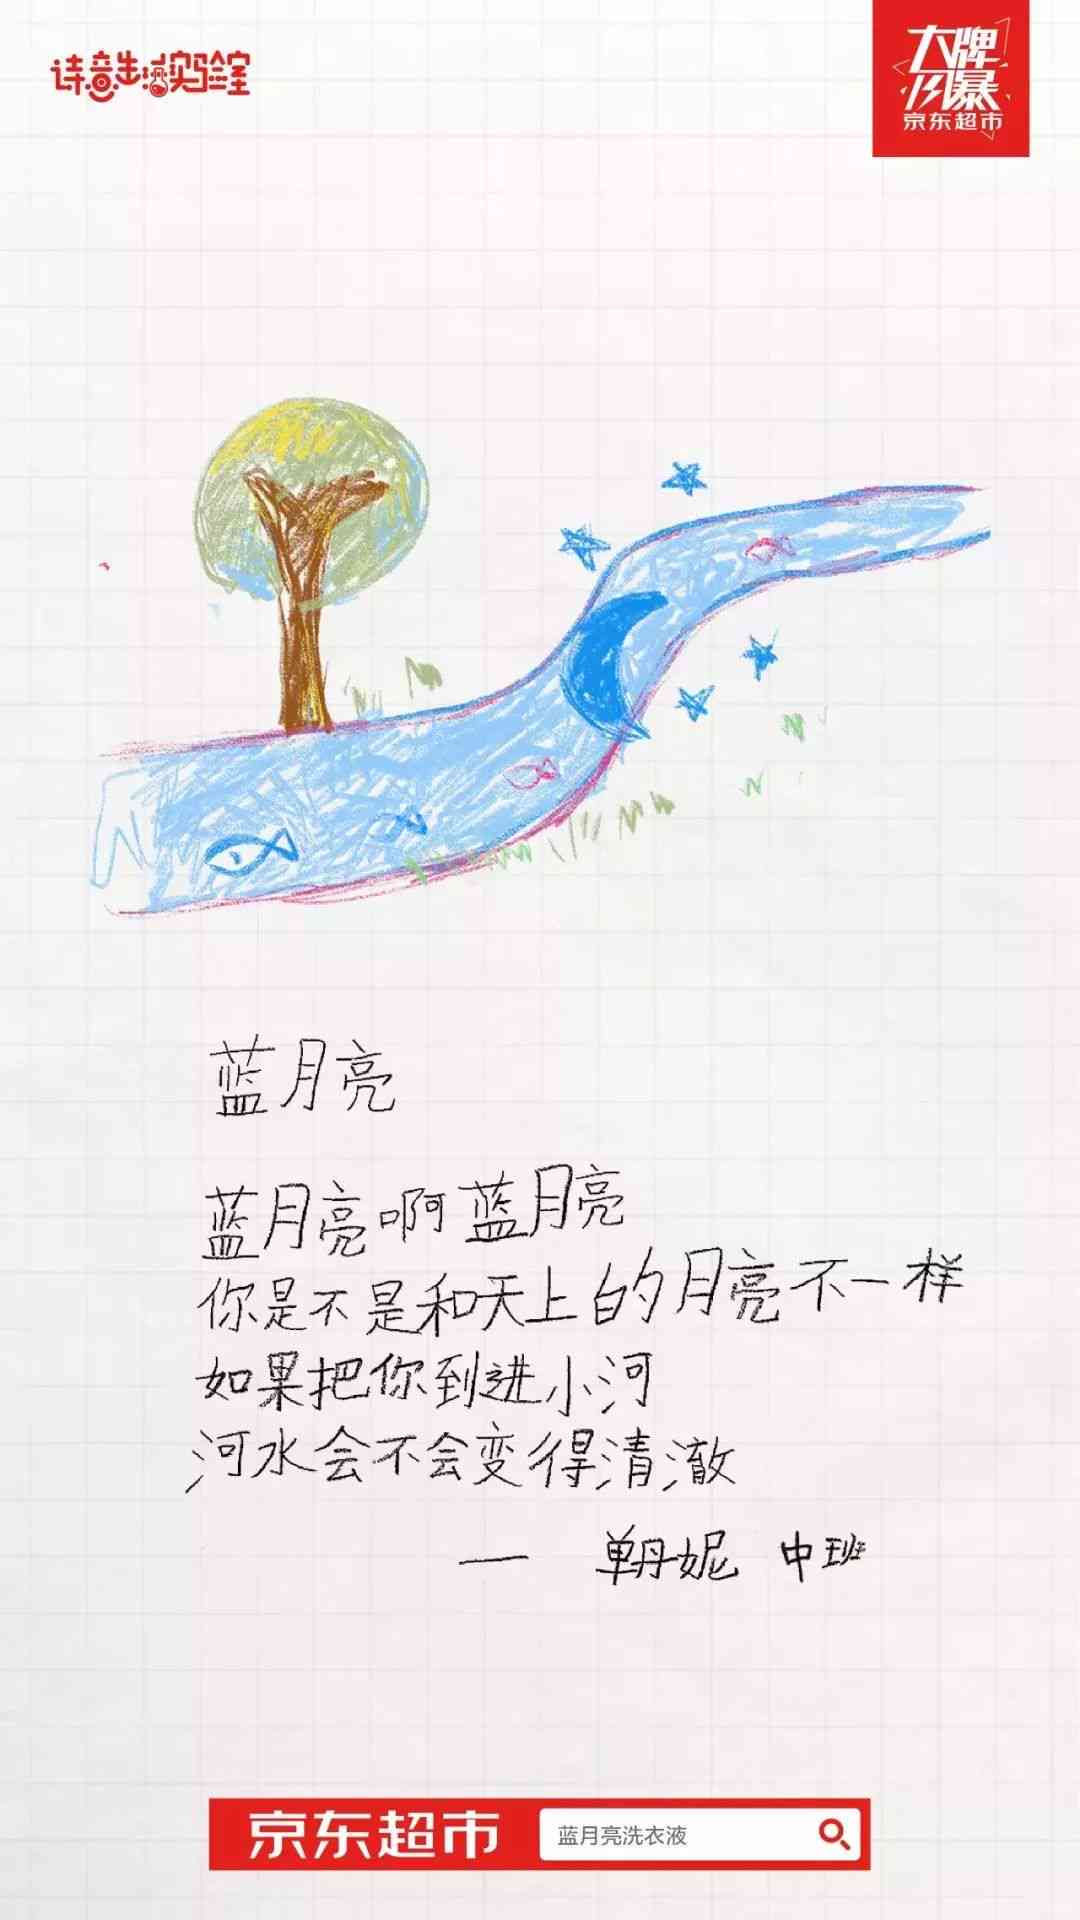 诗意生活实验室
大牌
风暴
京东超市
蓝月亮
蓝月亮啊蓝月亮
你是不是和天上的月亮不一样
如果把你到进小河
河水会不会变得清澈
— 单丹妮 中班
京东超市 蓝月亮洗衣液